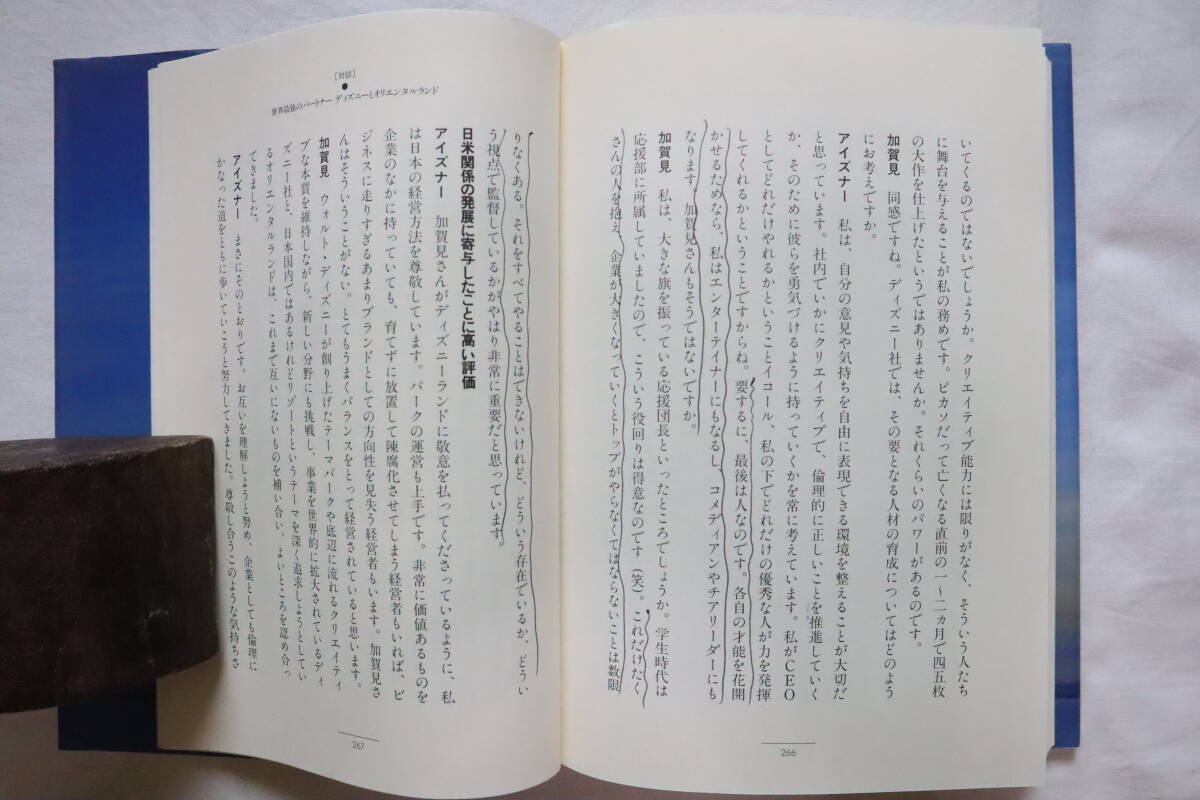 いてくるのではないでしょうか。クリエイティブ能力には限りがなく、そういう人たち
に舞台を与えることが私の務めです。ピカソだって亡くなる直前の一〜二ヵ月で四五枚
の大作を仕上げたというではありませんか。それくらいのパワーがあるのです。
加賀見 同感ですね。ディズニー社では、その要となる人材の育成についてはどのよう
にお考えですか。
アイズナー 私は、自分の意見や気持ちを自由に表現できる環境を整えることが大切だ
と思っています。社内でいかにクリエイティブで、倫理的に正しいことを推進していく
か、そのために彼らを勇気づけるように持っていくかを常に考えています。私がCEO
としてどれだけやれるかということイコール、私の下でどれだけの優秀な人が力を発揮
してくれるかということですからね。要するに、最後は人なのです。各自の才能を花開
かせるためなら、私はエンターテイナーにもなるし、コメディアンやチアリーダーにも
なります。加賀見さんもそうではないですか。
加賀見 私は、大きな旗を振っている応援団長といったところでしょうか。学生時代は
応援部に所属していましたので、こういう役回りは得意なのです(笑)。これだけたく
さんの人を抱え、企業が大きくなっていくとトップがやらなくてはならないことは数限
266
[対談]
●
世界最強のパートナー ディズニーとオリエンタルランド
りなくある。それをすべてやることはできないけれど、どういう存在でいるか、どうい
う視点で監督しているかがやはり非常に重要だと思っています。
日米関係の発展に寄与したことに高い評価
アイズナー 加賀見さんがディズニーランドに敬意を払ってくださっているように、私
は日本の経営方法を尊敬しています。パークの運営も上手です。非常に価値あるものを
企業のなかに持っていても、育てずに放置して陳腐化させてしまう経営者もいれば、ビ
ジネスに走りすぎるあまりブランドとしての方向性を見失う経営者もいます。加賀見さ
んはそういうことがない。とてもうまくバランスをとって経営されていると思います。
加賀見 ウォルト・ディズニーが創り上げたテーマパークや底辺に流れるクリエイティ
ブな本質を維持しながら、新しい分野にも挑戦し、事業を世界的に拡大されているディ
ズニー社と、日本国内ではあるけれどリゾートというテーマを深く追求しようとしてい
るオリエンタルランドは、これまで互いにないものを補い合い、よいところを認め合っ
てきました。
アイズナー まさにそのとおりです。お互いを理解しようと努め、企業としても倫理に
かなった道をともに歩いていこうと努力してきました。尊敬し合うこのような気持ちさ
267